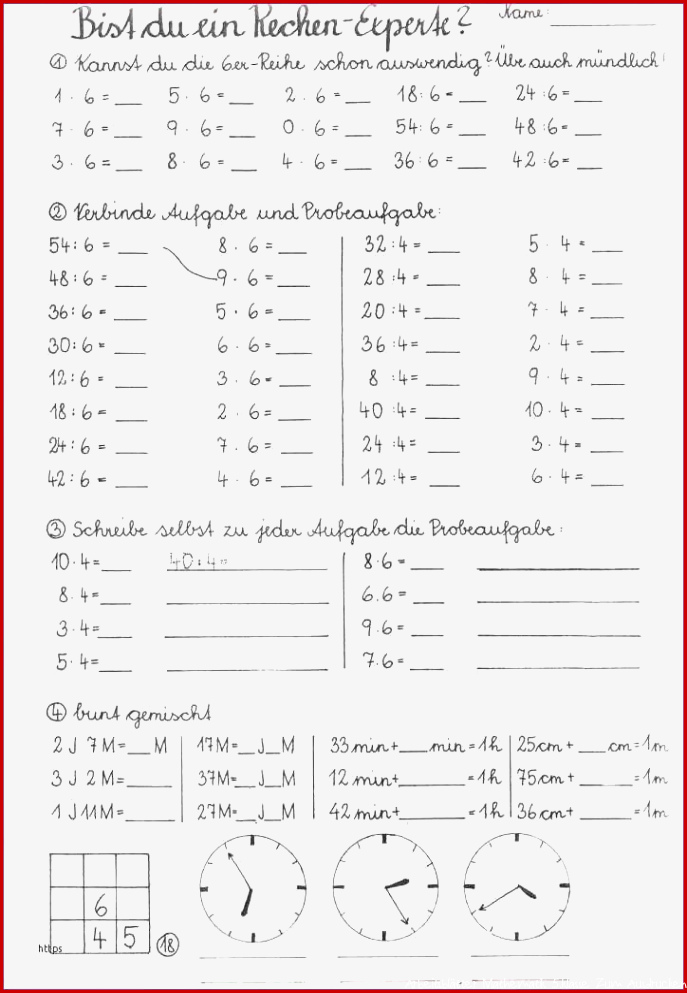 Bist du ein Rechen-Experte? Name: ____
① Kannst du die 6er-Reihe schon auswendig? Übe auch mündlich!
1 · 6 = ___ 5 · 6 = ___ 2 . 6 = ___ 18 : 6 = ___ 24 : 6 = ___
7 · 6 = ___ 9 · 6 = ___ 0 · 6 = ___ 54 : 6 = ___ 48 : 6 = ___
3 · 6 = ___ 8 · 6 = ___ 4 · 6 = ___ 36 : 6 = ___ 42 : 6 = ___
② Verbinde Aufgabe und Probeaufgabe:
54 : 6 = ___ 8 · 6 = ___ 32 : 4 = ___ 5 · 4 = ___
48 : 6 = ___ 9 · 6 = ___ 28 : 4 = ___ 8 · 4 = ___
36 : 6 = ___ 5 · 6 = ___ 20 : 4 = ___ 7 · 4 = ___
30 : 6 = ___ 6 · 6 = ___ 36 : 4 = ___ 2 · 4 = ___
12 : 6 = ___ 3 · 6 = ___ 8 : 4 = ___ 9 · 4 = ___
18 : 6 = ___ 2 · 6 = ___ 40 : 4 = ___ 10 · 4 = ___
24 : 6 = ___ 7 · 6 = ___ 24 : 4 = ___ 3 · 4 = ___
42 : 6 = ___ 4 · 6 = ___ 12 : 4 = ___ 6 · 4 = ___
③ Schreibe selbst zu jeder Aufgabe die Probeaufgabe:
10 · 4 = ___ 40 : 4 = 8 · 6 = ___
8 · 4 = ___ 6 . 6 = ___
3 · 4 = ___ 9 · 6 = ___
5 · 4 = ___ 7 · 6 = ___
④ bunt gemischt
2 J 7 M = ___ M 17 M = __ J __ M 33 min + ___ min = 1 h 25 cm + ___ cm = 1 m
3 J 2 M = ___ 37 M = __ J __ M 12 min + ___ = 1 h 75 cm + ___ = 1 m
1 J 11 M = ___ 27 M = __ J __ M 42 min + ___ = 1 h 36 cm + ___ = 1 m
6
4 5 ⑱
https